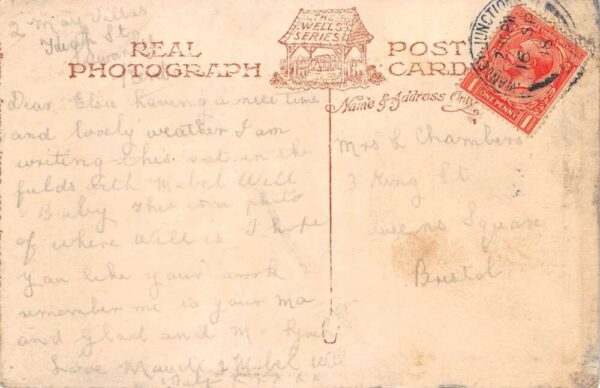 2 May Villas
High St
REAL
PHOTOGRAPH
THE
WELLS
SERIES
POST
CARD
Name & Address Only
JUNCTION
PM
16 SP
ONE PENNY
Dear Elsie having a nice time
and lovely weather I am
writing this sat in the
fields with Mabel Will
& Baby This is a photo
of where Will is I hope
you like your work
remember me to your Ma
and Glad and Mr
Love Maudi & Mabel Will
Mrs L Chambers
3 King St
Queens Square
Bristol